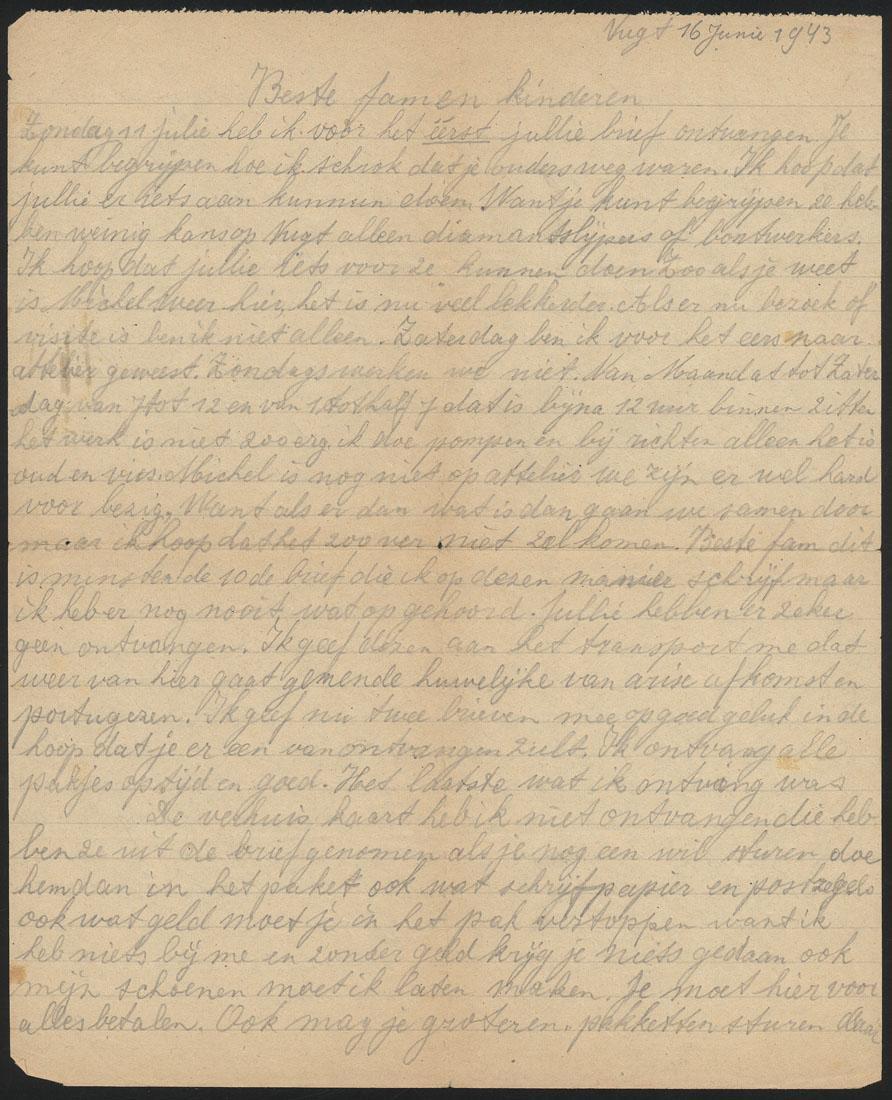 Vugt 16 Junie 1943
Beste fam en kinderen
Zondag 11 julie heb ik voor het éérst jullie brief ontvangen. Je
kunt begrijpen hoe ik schrok dat je ouders weg waren. Ik hoop dat
jullie er iets aan kunnun doen. Want je kunt begrijpen ze heb-
ben weinig kans op Vugt alleen diamantslijpers of bontwerkers.
Ik hoop dat jullie iets voor ze kunnen doen Zoo als je weet
is Michel weer hier, het is nu veel lekkerder. Als er nu bezoek of
visite is ben ik niet alleen. Zaterdag ben ik voor het eers naar
attelier geweest. Zondags werken we niet. Van Maandat tot Zater
dag van 7 tot 12 en van 1 tot half 7 dat is bijna 12 uur binnen zitten
het werk is niet zoo erg ik doe pompen en bij richten alleen het is
oud en vies. Michel is nog niet op attelier we zijn er wel hard
voor bezig. Want als er dan wat is dan gaan we samen door
maar ik hoop dat het zoo ver niet zal komen. Beste fam dit
is minsten de 10de brief die ik op dezen manier schrijf maar
ik heb er nog nooit wat op gehoord. Jullie hebben er zeker
geen ontvangen. Ik geef dezen aan het transport me dat
weer van hier gaat gemende huwelijke van arise afkomst en
portugezen. Ik geef nu twee brieven mee op goed geluk in de
hoop dat je er een van ontvangen zult. Ik ontvang alle
pakjes op tijd en goed. Het laatste wat ik ontving was
De verhuis kaart heb ik niet ontvangen die heb
ben ze uit de brief genomen als je nog een wil sturen doe
hem dan in het paket ook wat schrijfpapier en postzegels
ook wat geld moet je in het pak verstoppen want ik
heb niets bij me en zonder geld krijg je niets gedaan ook
mijn schoenen moet ik laten maken. Je moet hier voor
alles betalen. Ook mag je groteren pakketten sturen daar